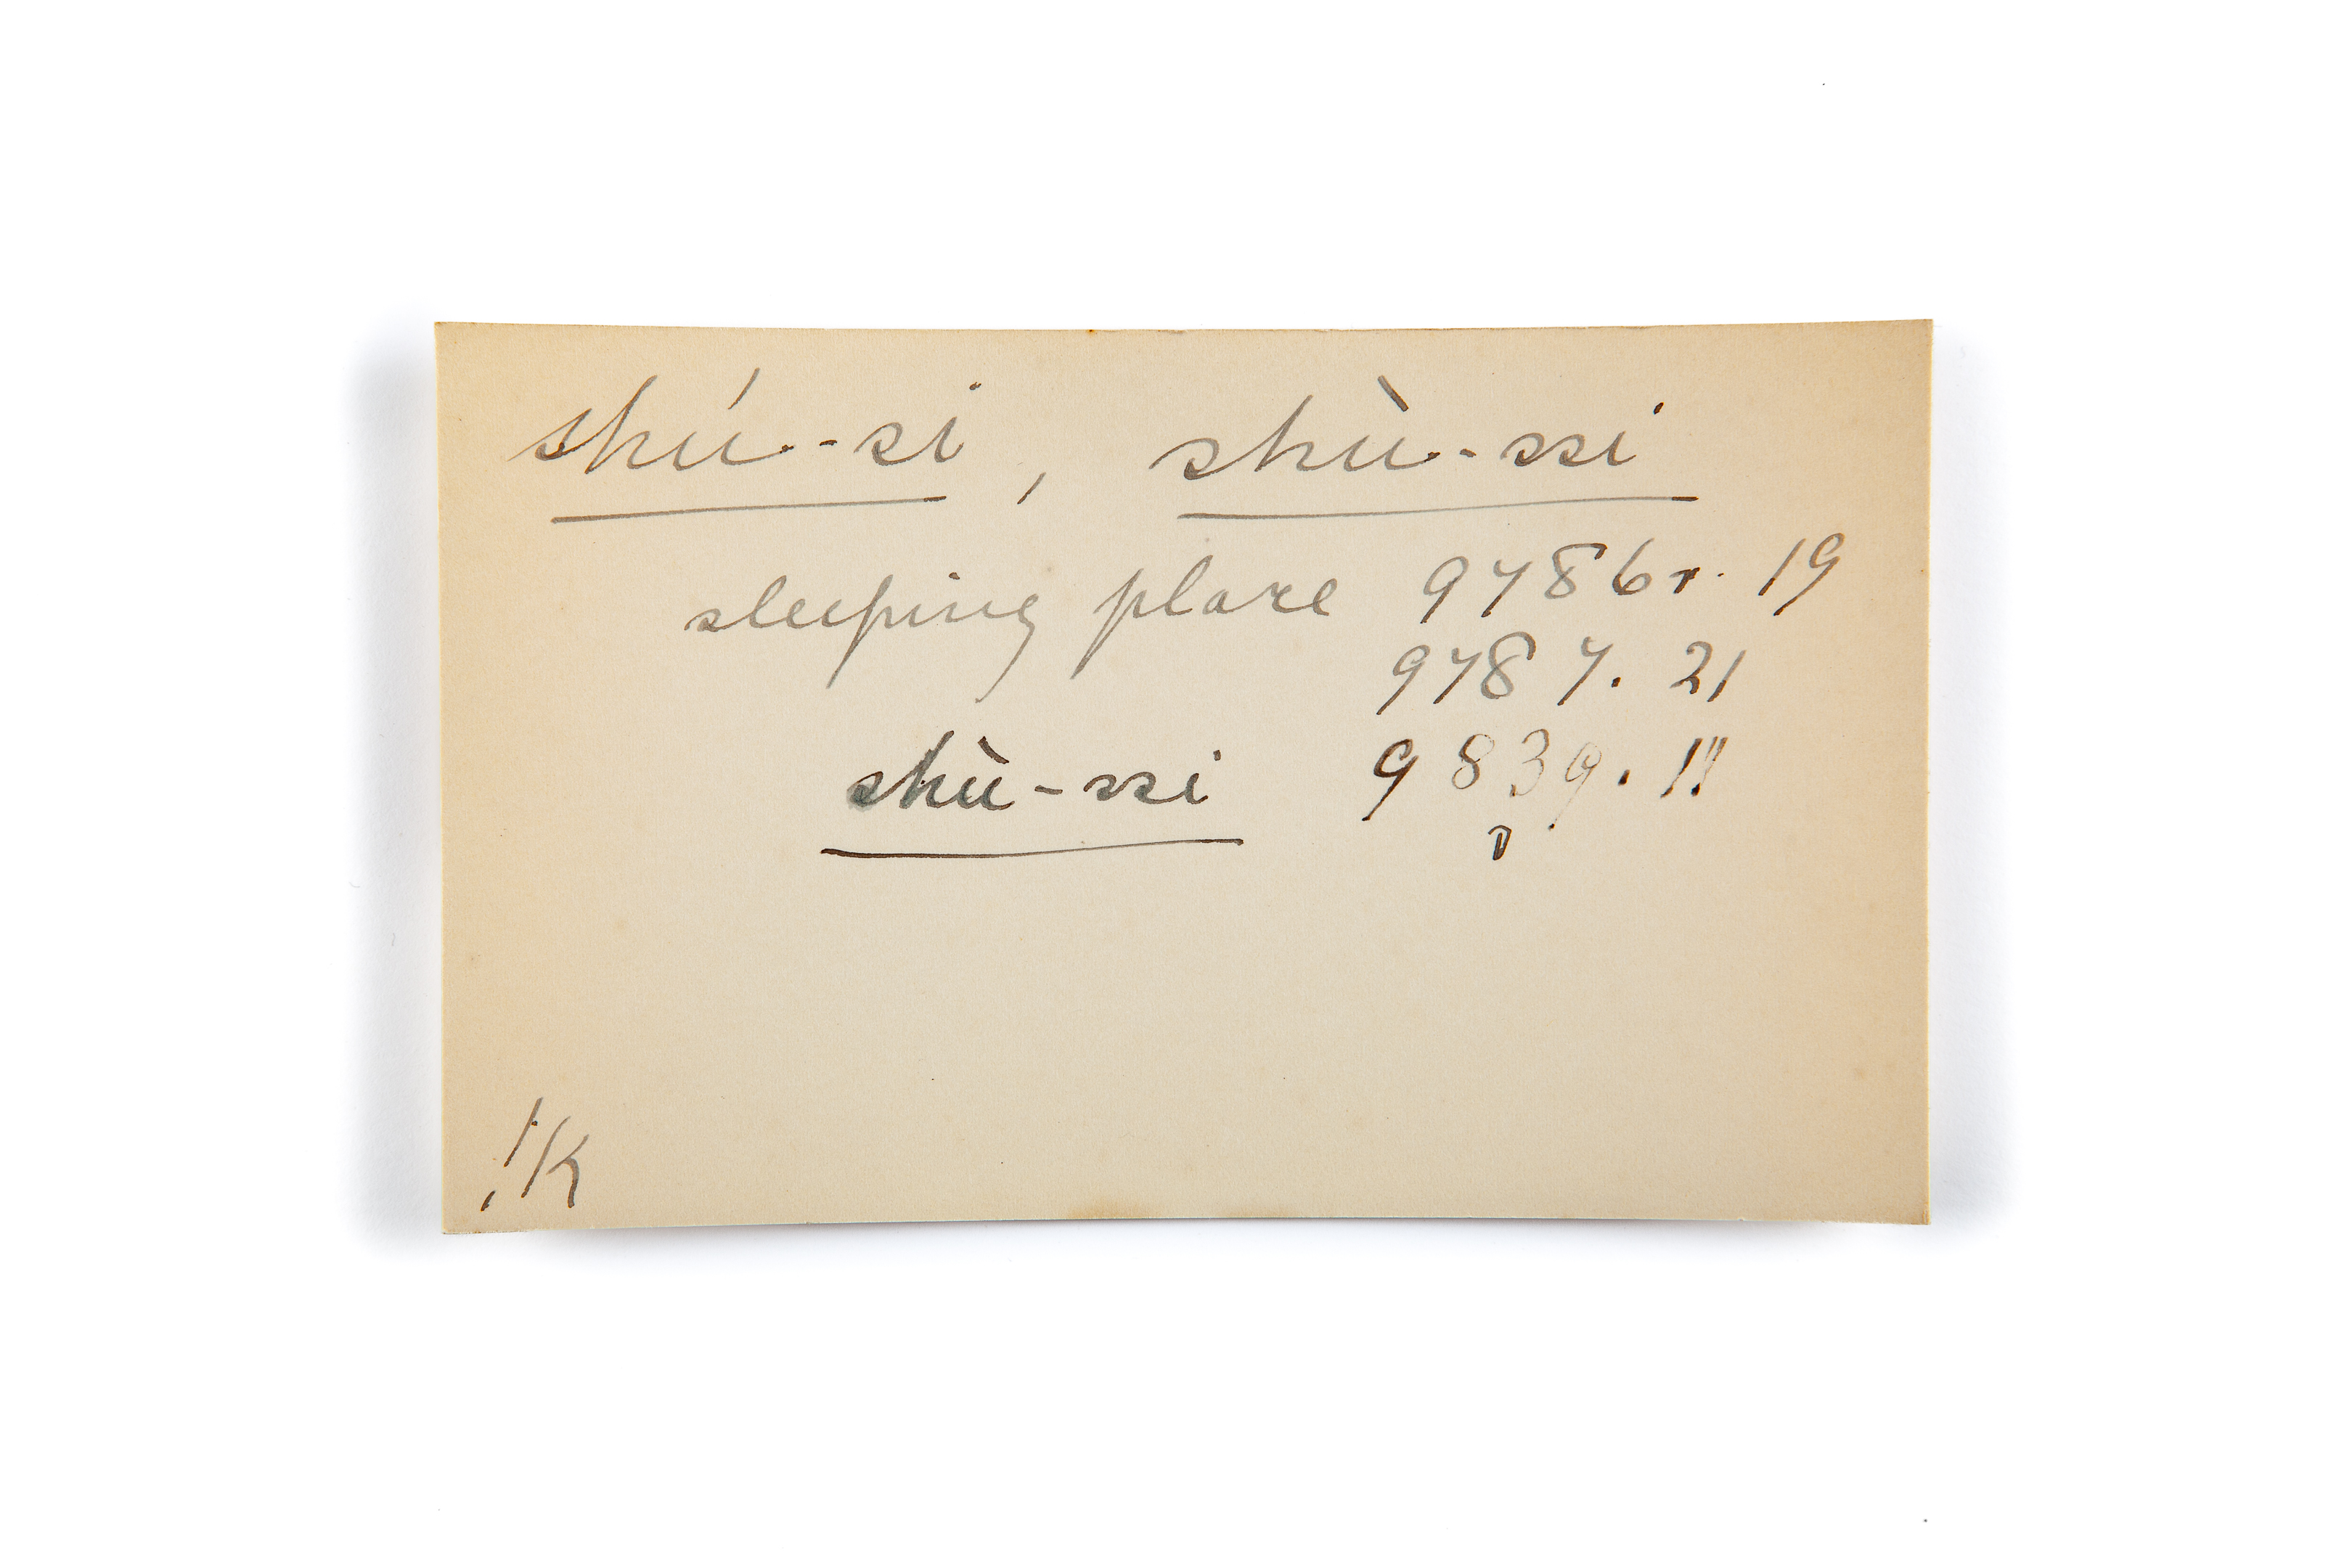 shú-si, shù-ssi
sleeping place 9786r. 19
9787. 21
shù-ssi 9839. 11
!K